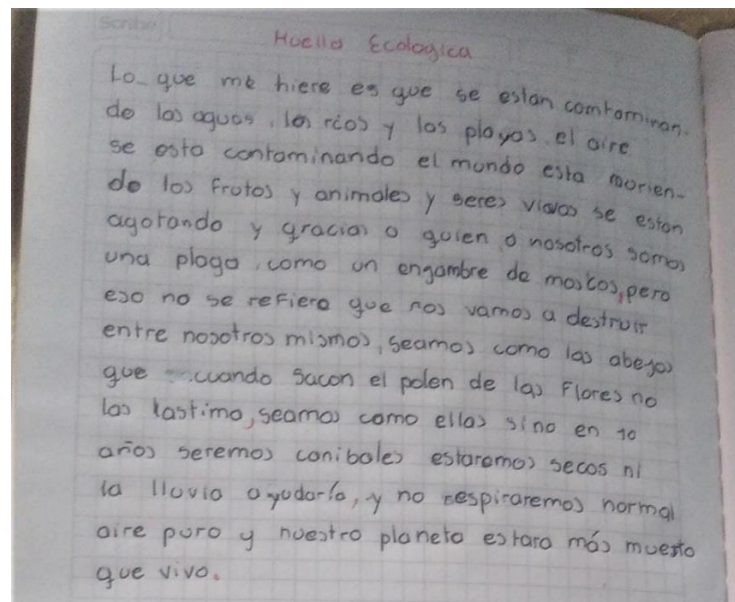 Scribe
Huella Ecologica
Lo que me hiere es que se estan contaminan-
do las aguas, los rios y las playas, el aire
se esta contaminando el mundo esta morien-
do los frutos y animales y seres vivos se estan
agotando y gracias a quien a nosotros somos
una plaga, como un engambre de moscos, pero
eso no se refiere que nos vamos a destruir
entre nosotros mismos, seamos como las abejas
que cuando sacan el polen de las flores no
las lastima, seamos como ellas sino en 10
años seremos canibales estaremos secos ni
la lluvia ayudaría, y no respiraremos normal
aire puro y nuestro planeta estara más muerto
que vivo.